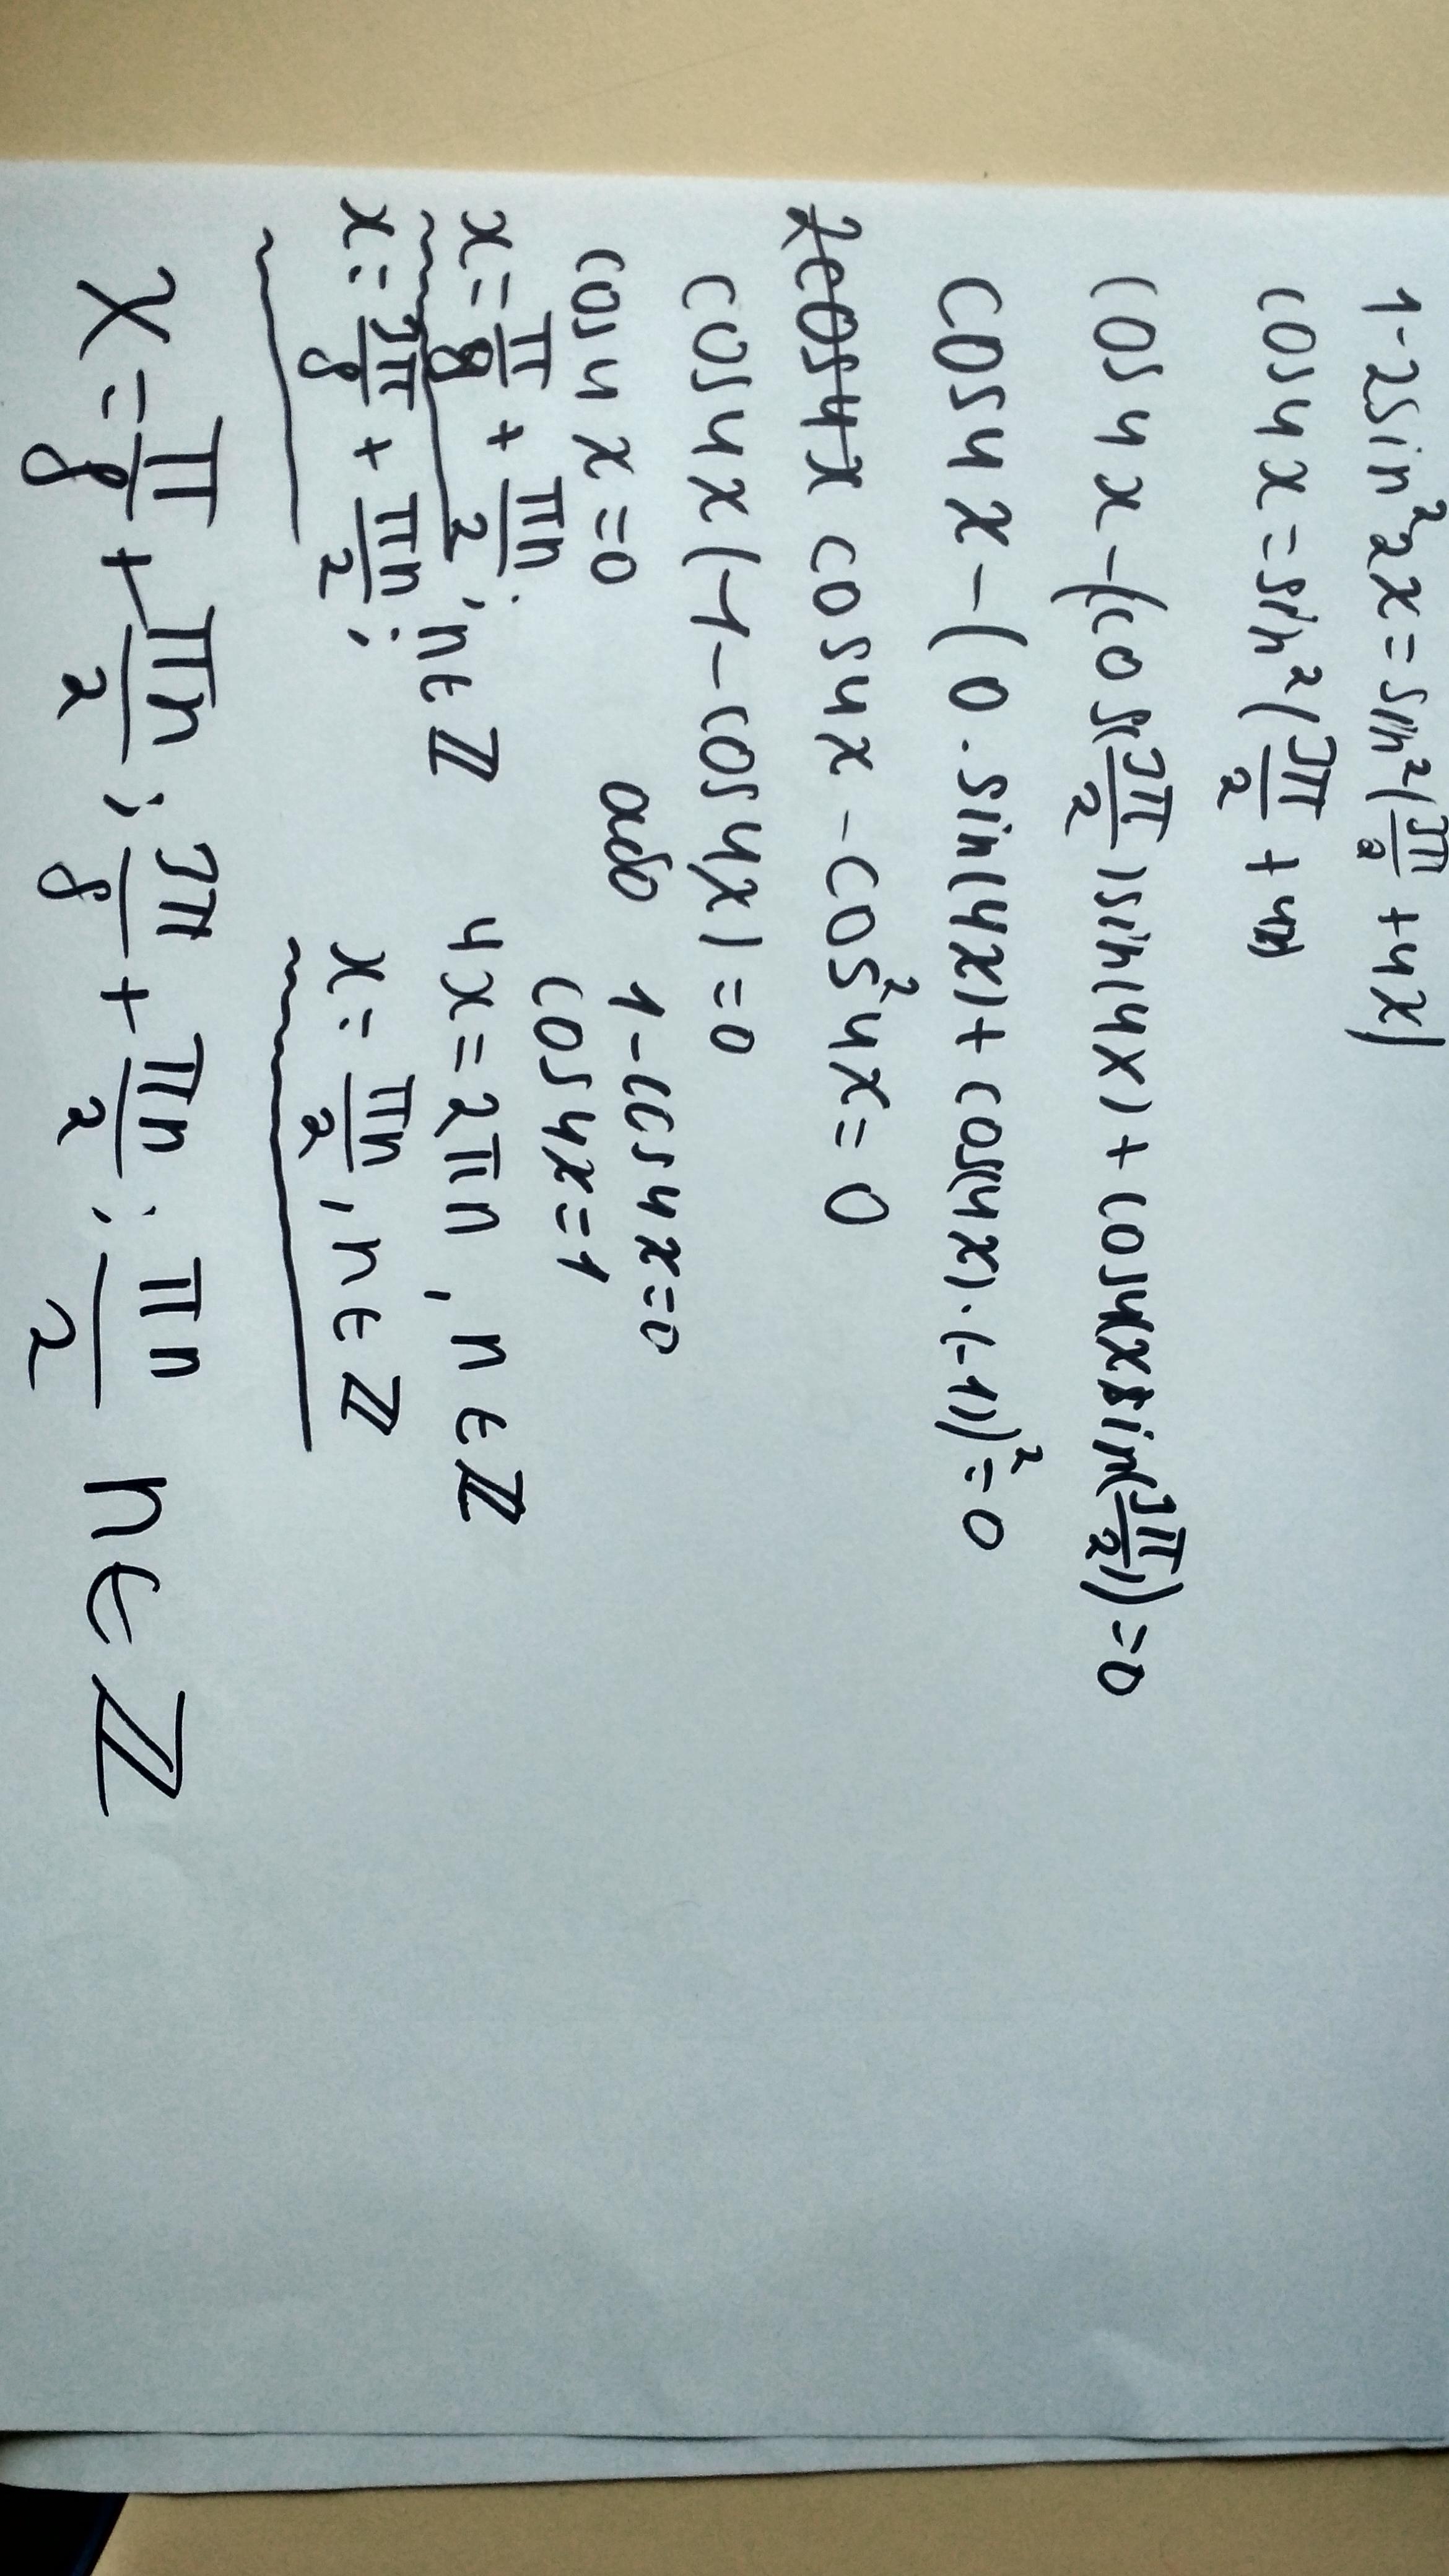 1-2sin²2x=sin²(3π/2+4x)
cos4x=sin²(3π/2+4x)
cos4x-(cos(3π/2)sin(4x)+cos4xsin(3π/2))=0
cos4x-(0·sin(4x)+cos(4x)·(-1))²=0
cos4x-cos²4x=0
cos4x(1-cos4x)=0
cos4x=0 або 1-cos4x=0
cos4x=1
x=π/8+πn/2; n∈ℤ 4x=2πn, n∈ℤ
x=3π/8+πn/2; x=πn/2, n∈ℤ
x=π/8+πn/2; 3π/8+πn/2; πn/2 n∈ℤ